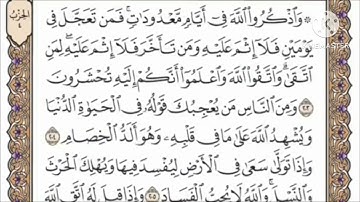 الحزب
٤
۞ وَاذْكُرُوا اللَّهَ فِي أَيَّامٍ مَعْدُودَاتٍ فَمَن تَعَجَّلَ فِي
يَوْمَيْنِ فَلَا إِثْمَ عَلَيْهِ وَمَن تَأَخَّرَ فَلَا إِثْمَ عَلَيْهِ لِمَنِ
اتَّقَى وَاتَّقُوا اللَّهَ وَاعْلَمُوا أَنَّكُمْ إِلَيْهِ تُحْشَرُونَ
٢٠٣ وَمِنَ النَّاسِ مَن يُعْجِبُكَ قَوْلُهُ فِي الْحَيَوٰةِ الدُّنْيَا
وَيُشْهِدُ اللَّهَ عَلَى مَا فِي قَلْبِهِ وَهُوَ أَلَدُّ الْخِصَامِ ٢٠٤
وَإِذَا تَوَلَّى سَعَى فِي الْأَرْضِ لِيُفْسِدَ فِيهَا وَيُهْلِكَ الْحَرْثَ
وَالنَّسْلَ وَاللَّهُ لَا يُحِبُّ الْفَسَادَ ٢٠٥ وَإِذَا قِيلَ لَهُ اتَّقِ اللَّهَ